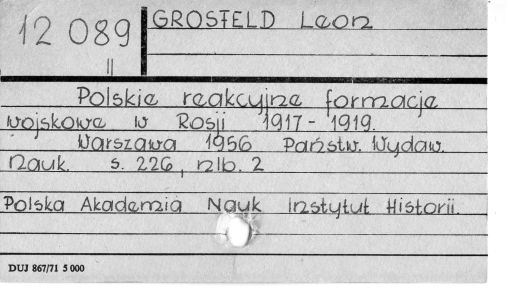 12 089
II
GROSFELD Leon
Polskie reakcyjne formacje
wojskowe w Rosji 1917-1919.
Warszawa 1956 Państw. Wydaw.
Nauk. s. 226, nlb. 2
Polska Akademia Nauk Instytut Historii.
DUJ 867/71 5 000